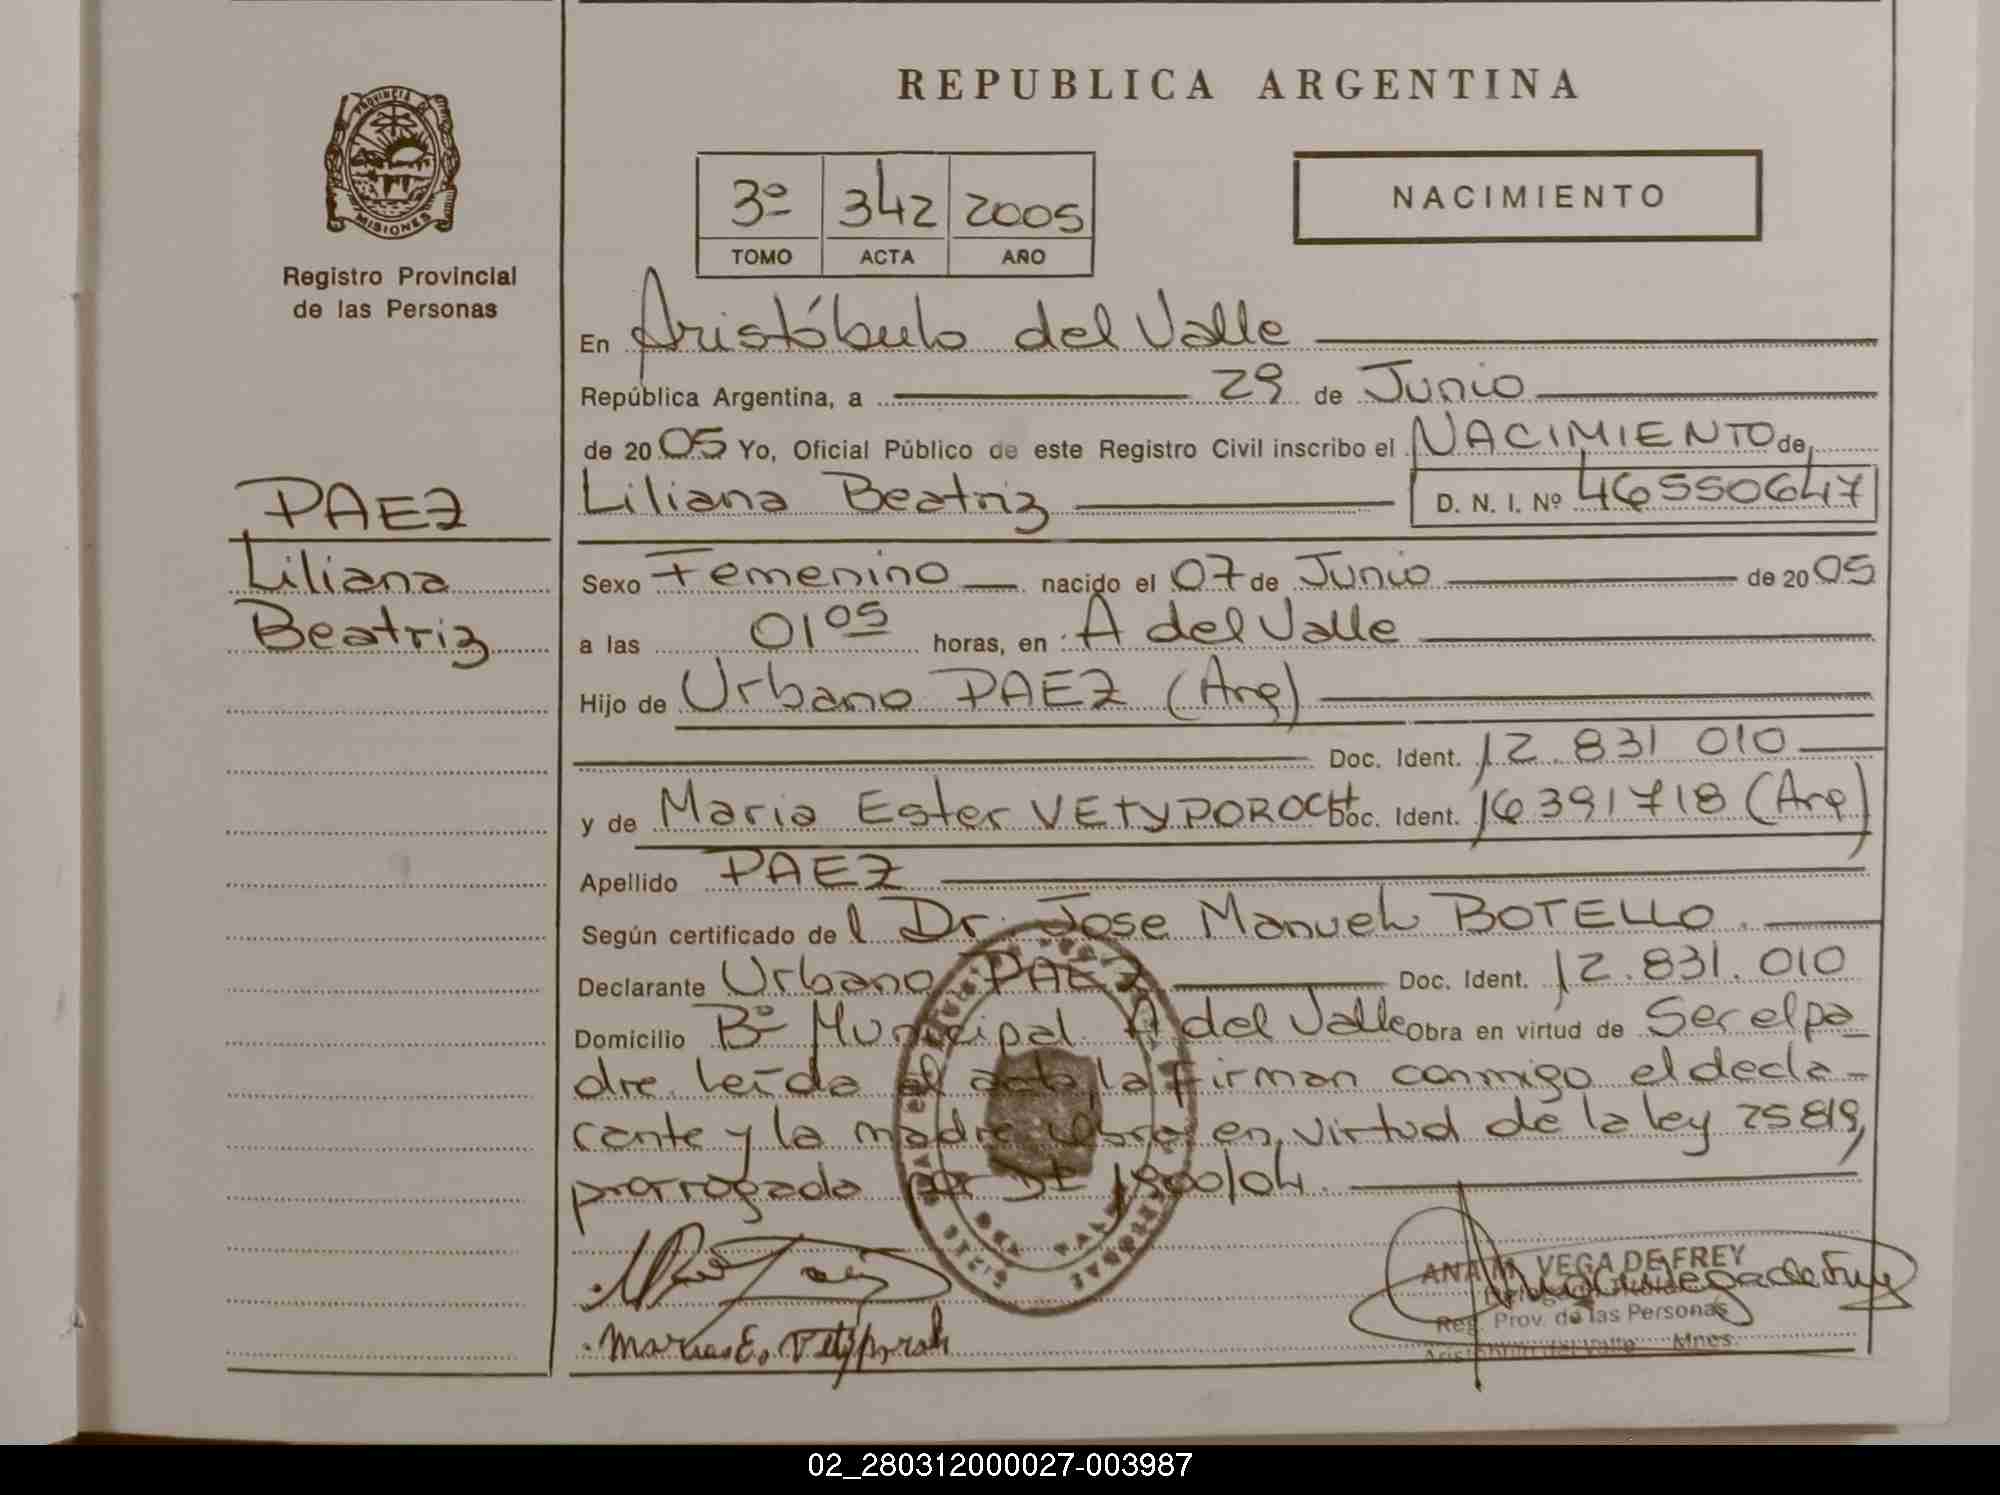 REPUBLICA ARGENTINA
PROVINCIA DE
MISIONES
Registro Provincial
de las Personas
3º 342 2005
TOMO ACTA AÑO
NACIMIENTO
En Aristóbulo del Valle
República Argentina, a 29 de Junio
de 2005 Yo, Oficial Público de este Registro Civil inscribo el NACIMIENTO de
PAEZ
Liliana
Beatriz
Liliana Beatriz D. N. I. Nº 46550647
Sexo Femenino nacido el 07 de Junio de 2005
a las 01 05 horas, en A del Valle
Hijo de Urbano PAEZ (Arg)
Doc. Ident. 12.831 010
y de Maria Ester VETYPOROCH Doc. Ident. 16391718 (Arg)
Apellido PAEZ
Según certificado del Dr. Jose Manuel BOTELLO.
Declarante Urbano PAEZ Doc. Ident. 12.831.010
Domicilio Bº Municipal A del Valle Obra en virtud de Ser el pa
dre. leída el acta, la firman conmigo el decla-
rante y la madre obra en virtud de la ley 25819,
prorrogada por Dt 1800/04.
ANA M. VEGA DE FREY
Reg. Prov. de las Personas
Aristóbulo del Valle Mnes.
Maria E. Vetyporoh
02_280312000027-003987